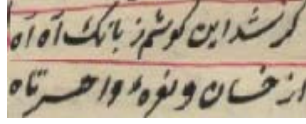 کر شد این گوشم ز بانگ آه آه
از خسان و نوحهٔ وا حسرتاه